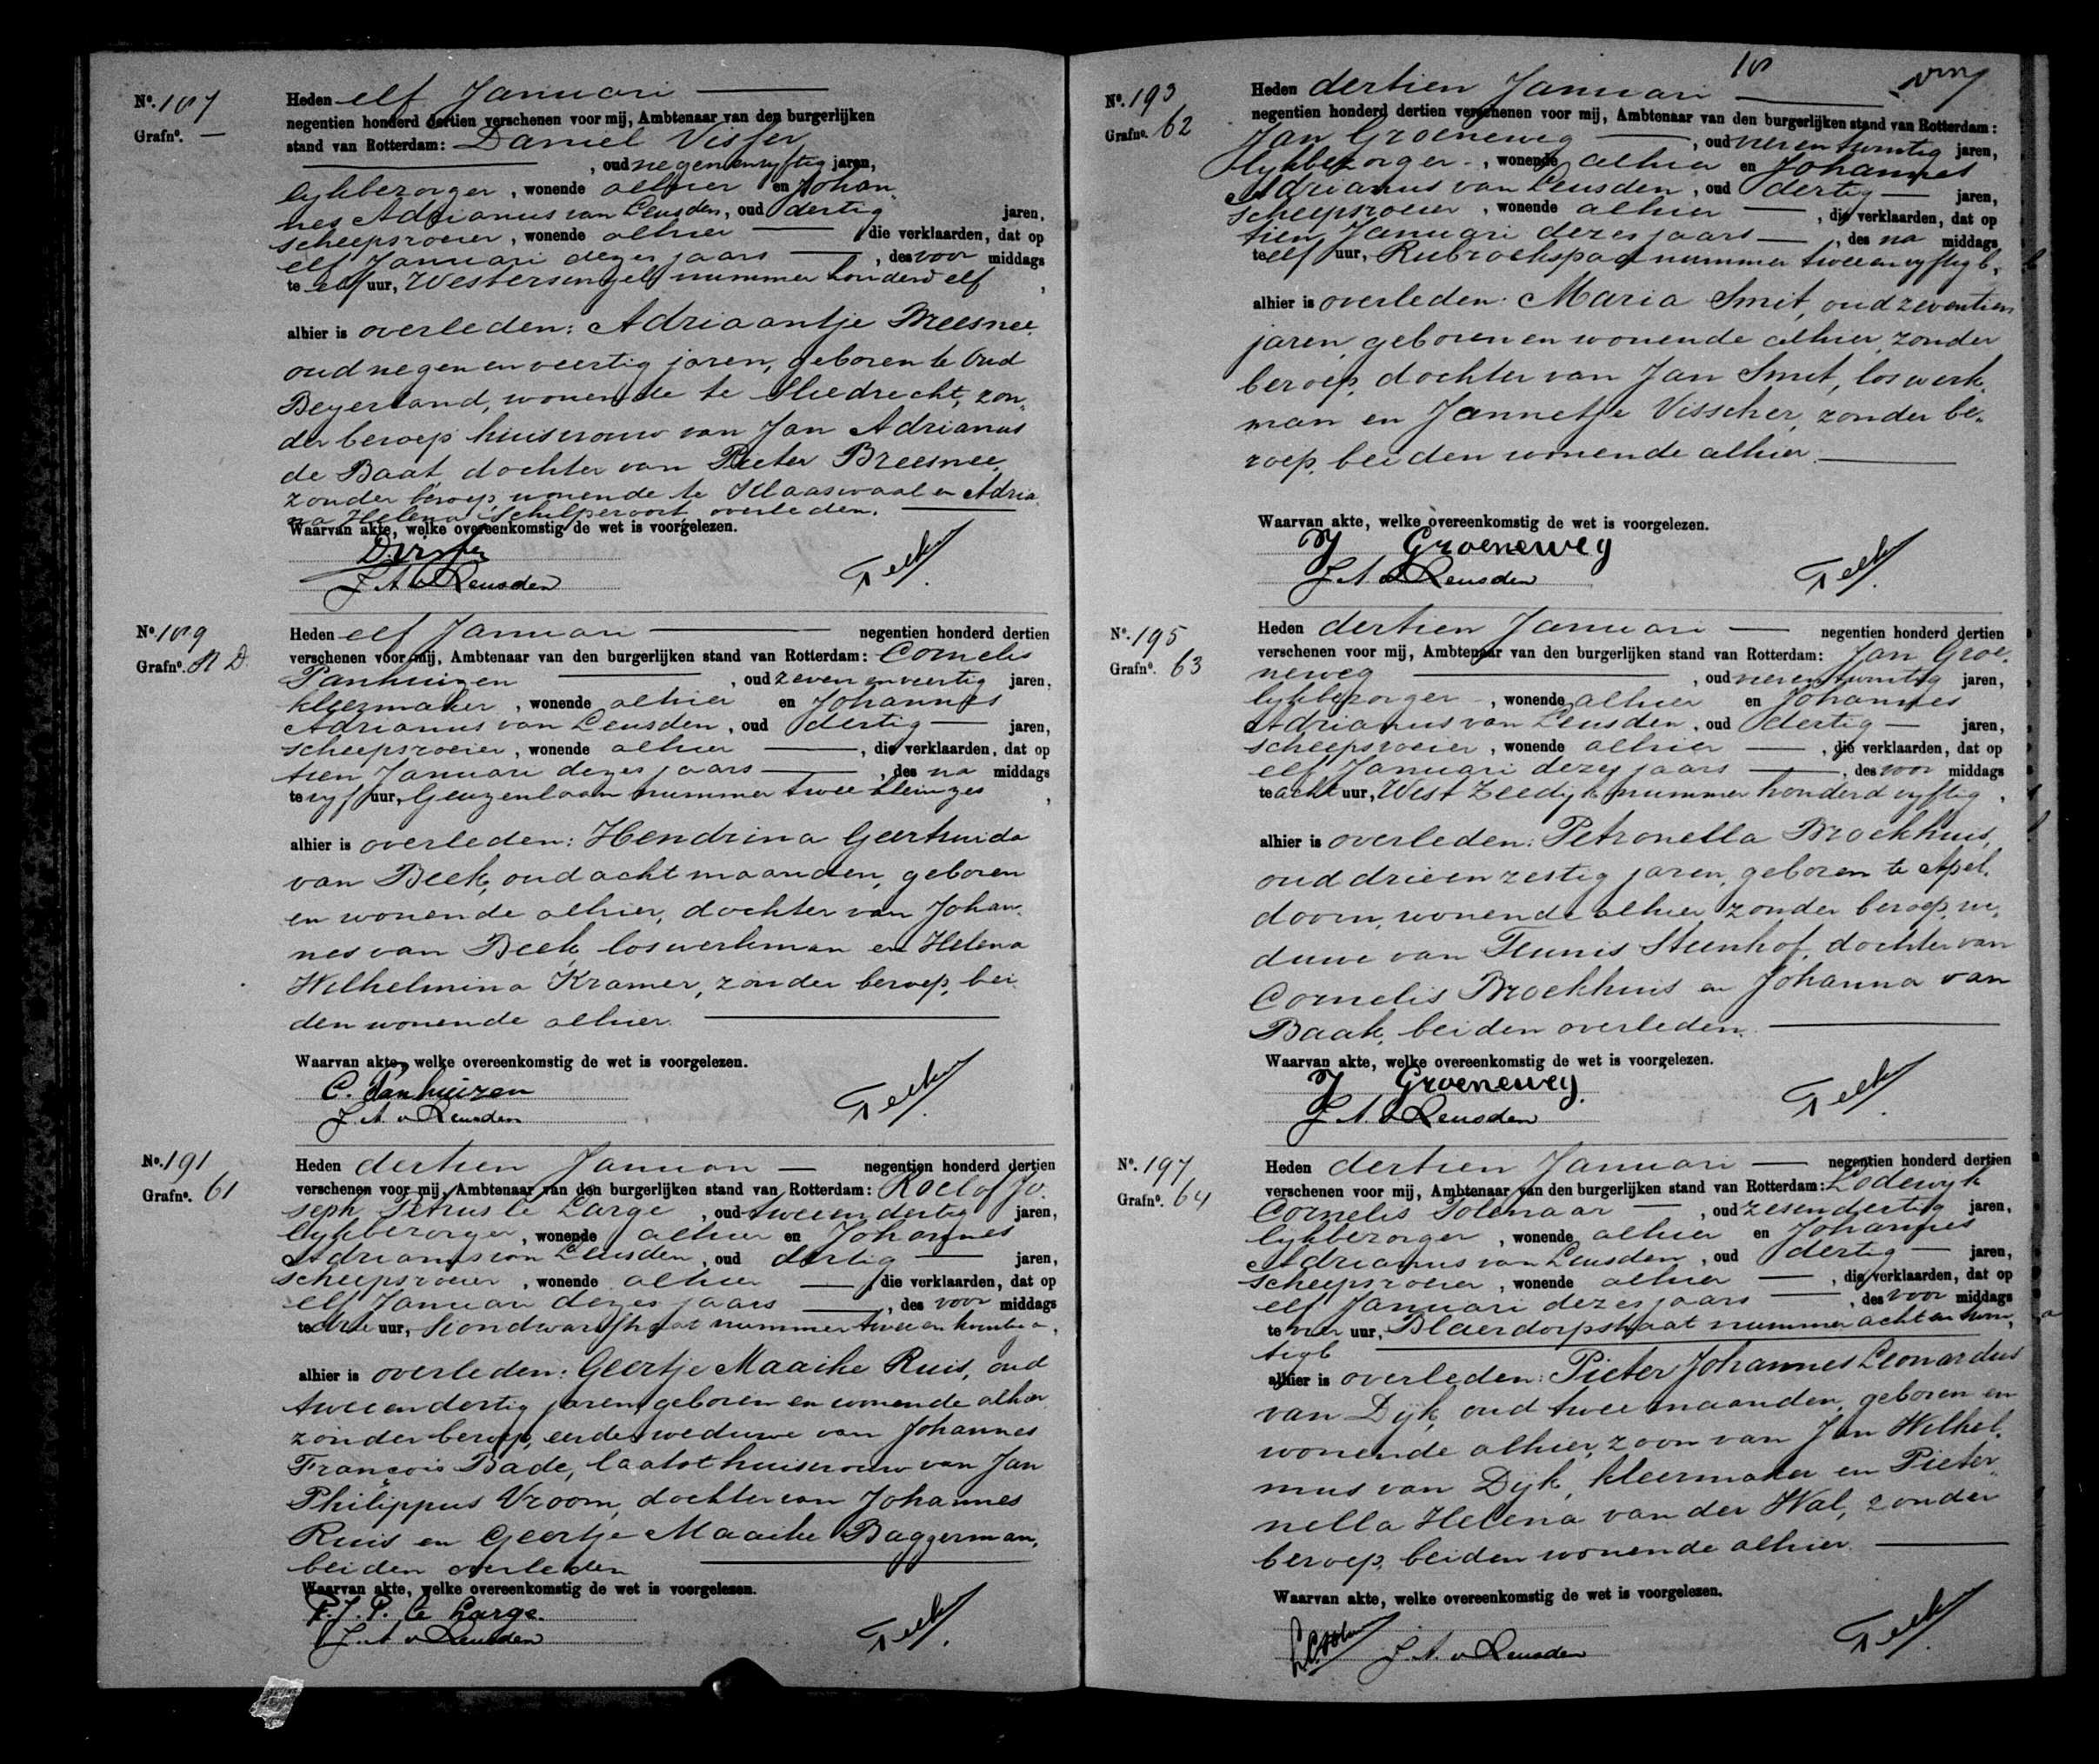 No. 187
Grafno. —
Heden elf Januari
negentien honderd dertien verschenen voor mij, Ambtenaar van den burgerlijken
stand van Rotterdam: Daniel Visser
, oud negenenvyftig jaren,
lykbezorger, wonende alhier en Johan-
nes Adrianus van Leusden, oud dertig jaren,
scheepsroeier, wonende alhier die verklaarden, dat op
elf Januari dezes jaars, des voor middags
te elf uur, Westersingel nummer honderd elf,
alhier is overleden: Adriaantje Breesnee,
oud negen en veertig jaren, geboren te Oud
Beyerland, wonende te Sliedrecht, zon-
der beroep huisvrouw van Jan Adrianus
de Baat, dochter van Pieter Breesnee,
zonder beroep, wonende te Klaaswaal en Adria-
na Helena Schilperoort overleden.
Waarvan akte, welke overeenkomstig de wet is voorgelezen.
D. Visser
J. A. v Leusden
No. 189
Grafno. R D.
Heden elf Januari negentien honderd dertien
verschenen voor mij, Ambtenaar van den burgerlijken stand van Rotterdam: Cornelis
Panhuizen, oud zeven en veertig jaren,
kleermaker, wonende alhier en Johannes
Adrianus van Leusden, oud dertig jaren,
scheepsroeier, wonende alhier, die verklaarden, dat op
tien Januari dezes jaars, des na middags
te vyf uur, Geuzenlaan nummer twee,
alhier is overleden: Hendrina Geertruida
van Beek, oud acht maanden, geboren
en wonende alhier, dochter van Johan-
nes van Beek, loswerkman en Helena
Wilhelmina Kramer, zonder beroep, bei-
den wonende alhier.
Waarvan akte, welke overeenkomstig de wet is voorgelezen.
C. Panhuizen
J. A. v Leusden
No. 191
Grafno. 61
Heden dertien Januari — negentien honderd dertien
verschenen voor mij, Ambtenaar van den burgerlijken stand van Rotterdam: Roelof Jo-
seph Petrus te Large, oud tweeendertig jaren,
lykbezorger, wonende alhier en Johannes
Adrianus van Leusden, oud dertig jaren,
scheepsroeier, wonende alhier, die verklaarden, dat op
elf Januari dezes jaars, des voor middags
te drie uur, nummer twee en,
alhier is overleden: Geertje Maaike Ruis, oud
tweeendertig jaren, geboren en wonende alhier
zonder beroep, eerder weduwe van Johannes
François Bade, laatst huisvrouw van Jan
Philippus Vroom, dochter van Johannes
Ruis en Geertje Maaike Baggerman,
beiden overleden
Waarvan akte, welke overeenkomstig de wet is voorgelezen.
R. J. P. te Large.
J. A v Leusden
No. 193
Grafno. 62
Heden dertien Januari
negentien honderd dertien verschenen voor mij, Ambtenaar van den burgerlijken stand van Rotterdam:
Jan Groeneweg, oud vierentwintig jaren,
lykbezorger, wonende alhier en Johannes
Adrianus van Leusden, oud dertig jaren,
scheepsroeier, wonende alhier, die verklaarden, dat op
tien Januari dezes jaars, des na middags
te elf uur, Rubroekspad nummer tweeenvyftig b,
alhier is overleden: Maria Smit, oud zeventien
jaren, geboren en wonende alhier, zonder
beroep, dochter van Jan Smit, loswerk-
man en Jannetje Visscher, zonder be-
roep, beiden wonende alhier.
Waarvan akte, welke overeenkomstig de wet is voorgelezen.
J Groeneweg
J. A v Leusden
No. 195
Grafno. 63
Heden dertien Januari — negentien honderd dertien
verschenen voor mij, Ambtenaar van den burgerlijken stand van Rotterdam: Jan Groe-
neweg, oud vierentwintig jaren,
lykbezorger, wonende alhier en Johannes
Adrianus van Leusden, oud dertig jaren,
scheepsroeier, wonende alhier, die verklaarden, dat op
elf Januari dezes jaars, des voor middags
te acht uur, West Zeedyk nummer honderd vyftig,
alhier is overleden: Petronella Broekhuis,
oud drieenzestig jaren, geboren te Apel-
doorn, wonende alhier, zonder beroep, we-
duwe van Teunis Steenhof, dochter van
Cornelis Broekhuis en Johanna van
Baak, beiden overleden.
Waarvan akte, welke overeenkomstig de wet is voorgelezen.
J Groeneweg.
J. A. v Leusden
No. 197
Grafno. 64
Heden dertien Januari — negentien honderd dertien
verschenen voor mij, Ambtenaar van den burgerlijken stand van Rotterdam: Lodewyk
Cornelis Tolenaar, oud zesendertig jaren,
lykbezorger, wonende alhier en Johannes
Adrianus van Leusden, oud dertig jaren,
scheepsroeier, wonende alhier, die verklaarden, dat op
elf Januari dezes jaars, des voor middags
te vier uur, Blaerdorpstraat nummer acht en twin-
tig b
alhier is overleden: Pieter Johannes Leonardus
van Dijk, oud twee maanden, geboren en
wonende alhier, zoon van Jan Wilhel-
mus van Dijk, kleermaker en Pieter-
nella Helena van der Wal, zonder
beroep, beiden wonende alhier.
Waarvan akte, welke overeenkomstig de wet is voorgelezen.
J. A. v Leusden